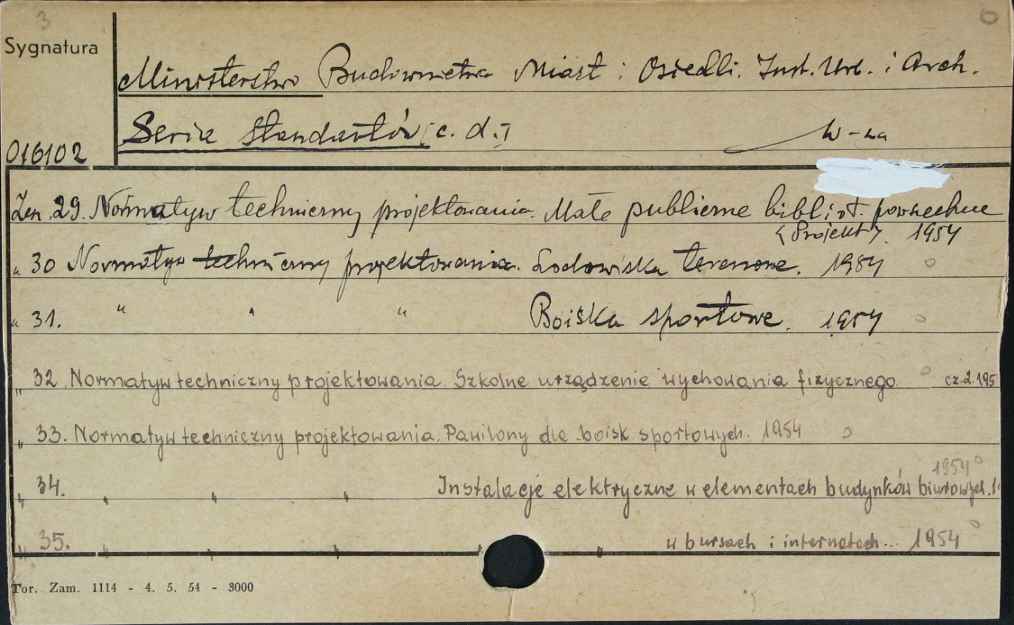 3
Sygnatura
Ministerstwo Budownictwa Miast i Osiedli. Inst. Urb. i Arch.
Seria standartów, c. d.
W-wa
016102
Zesz. 29. Normatyw techniczny projektowania. Małe publiczne bibliot. powszechne
(Projekt). 1954
„ 30 Normatyw techniczny projektowania. Lodowiska terenowe. 1954
„ 31. „ „ „ Boiska sportowe. 1954
„ 32. Normatyw techniczny projektowania. Szkolne urządzenie wychowania fizycznego cz.2.195
„ 33. Normatyw techniczny projektowania. Pawilony dla boisk sportowych. 1954
1954
„ 34. „ „ „ Instalacje elektryczne w elementach budynków biurowych.
„ 35. „ „ „ „ „ w bursach i internatach... 1954
Tor. Zam. 1114 - 4. 5. 54 - 3000